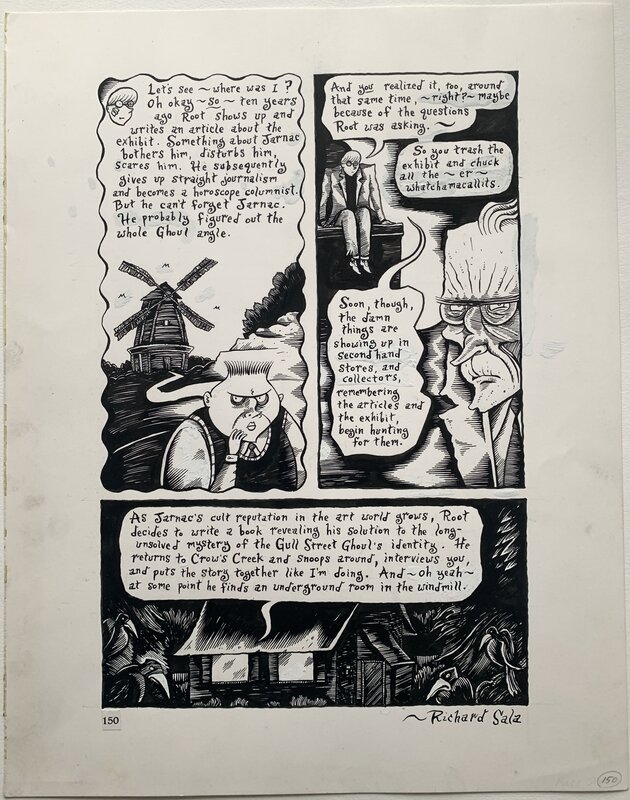 Let's see ~ where was I ?
Oh okay ~ so ~ ten years
ago Root shows up and
writes an article about the
exhibit. Something about Jarnac
bothers him, disturbs him,
scares him. He subsequently
gives up straight journalism
and becomes a horoscope columnist.
But he can't forget Jarnac.
He probably figured out the
whole Ghoul angle.
And you realized it, too, around
that same time, ~ right? ~ maybe
because of the questions
Root was asking. ~
So you trash the
exhibit and chuck
all the ~ er ~
whatchamacallits.
Soon, though,
the damn
things are
showing up in
second hand
stores, and
collectors,
remembering
the articles and
the exhibit,
begin hunting
for them.
As Jarnac's cult reputation in the art world grows, Root
decides to write a book revealing his solution to the long-
unsolved mystery of the Gull Street Ghoul's identity. He
returns to Crow's Creek and snoops around, interviews you,
and puts the story together like I'm doing. And ~ oh yeah ~
at some point he finds an underground room in the windmill.
150
~ Richard Sala
150